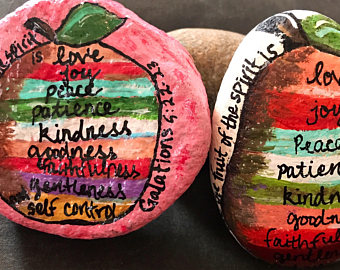 spirit
is love
joy
peace
patience
kindness
goodness
faithfulness
gentleness
self control
Galations 5:22-23
fruit of the spirit is
love
joy
Peace
patien
kindn
good-n
faithful